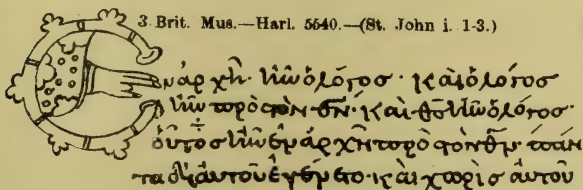 3. Brit. Mus.—Harl. 5540.—(St. John i. 1-3.)
Ἐν ἀρχῇ· ἦν ὁ λόγος· καὶ ὁ λόγος
ἦν πρὸς τὸν θν· καὶ θς ἦν ὁ λόγος·
οὗτος ἦν ἐν ἀρχῇ πρὸς τὸν θν· πάν
τα δι αὐτοῦ ἐγένετο· καὶ χωρὶς αὐτοῦ